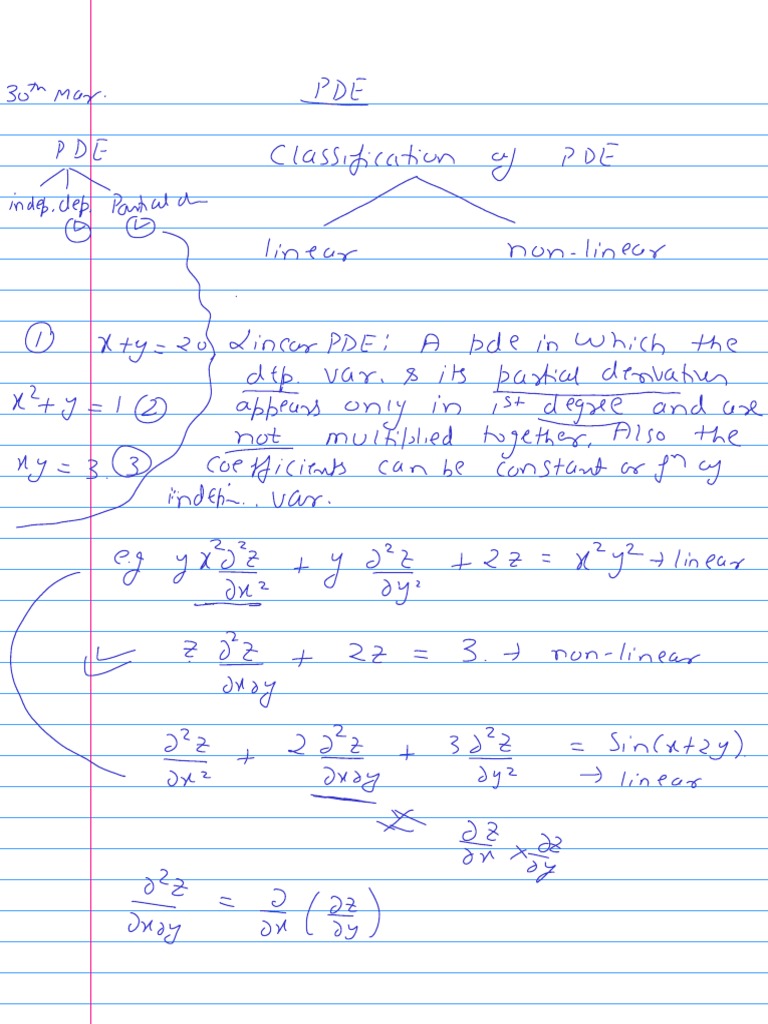 30th Mar. PDE
PDE
indep. dep. Partial d
Classification of PDE
linear non-linear
① x+y=20
x²+y=1 ②
xy=3. ③
Linear PDE: A pde in which the
dep. var. & its partial derivatives
appears only in 1st degree and are
not multiplied together. Also the
coefficients can be constant or fⁿ of
indep. var.
e.g yx²∂²z/∂x² + y ∂²z/∂y² + 2z = x²y² → linear
z ∂²z/∂x∂y + 2z = 3. → non-linear
∂²z/∂x² + 2 ∂²z/∂x∂y + 3 ∂²z/∂y² = Sin(x+2y).
→ linear
∂z/∂x × ∂z/∂y
∂²z/∂x∂y = ∂/∂x (∂z/∂y)